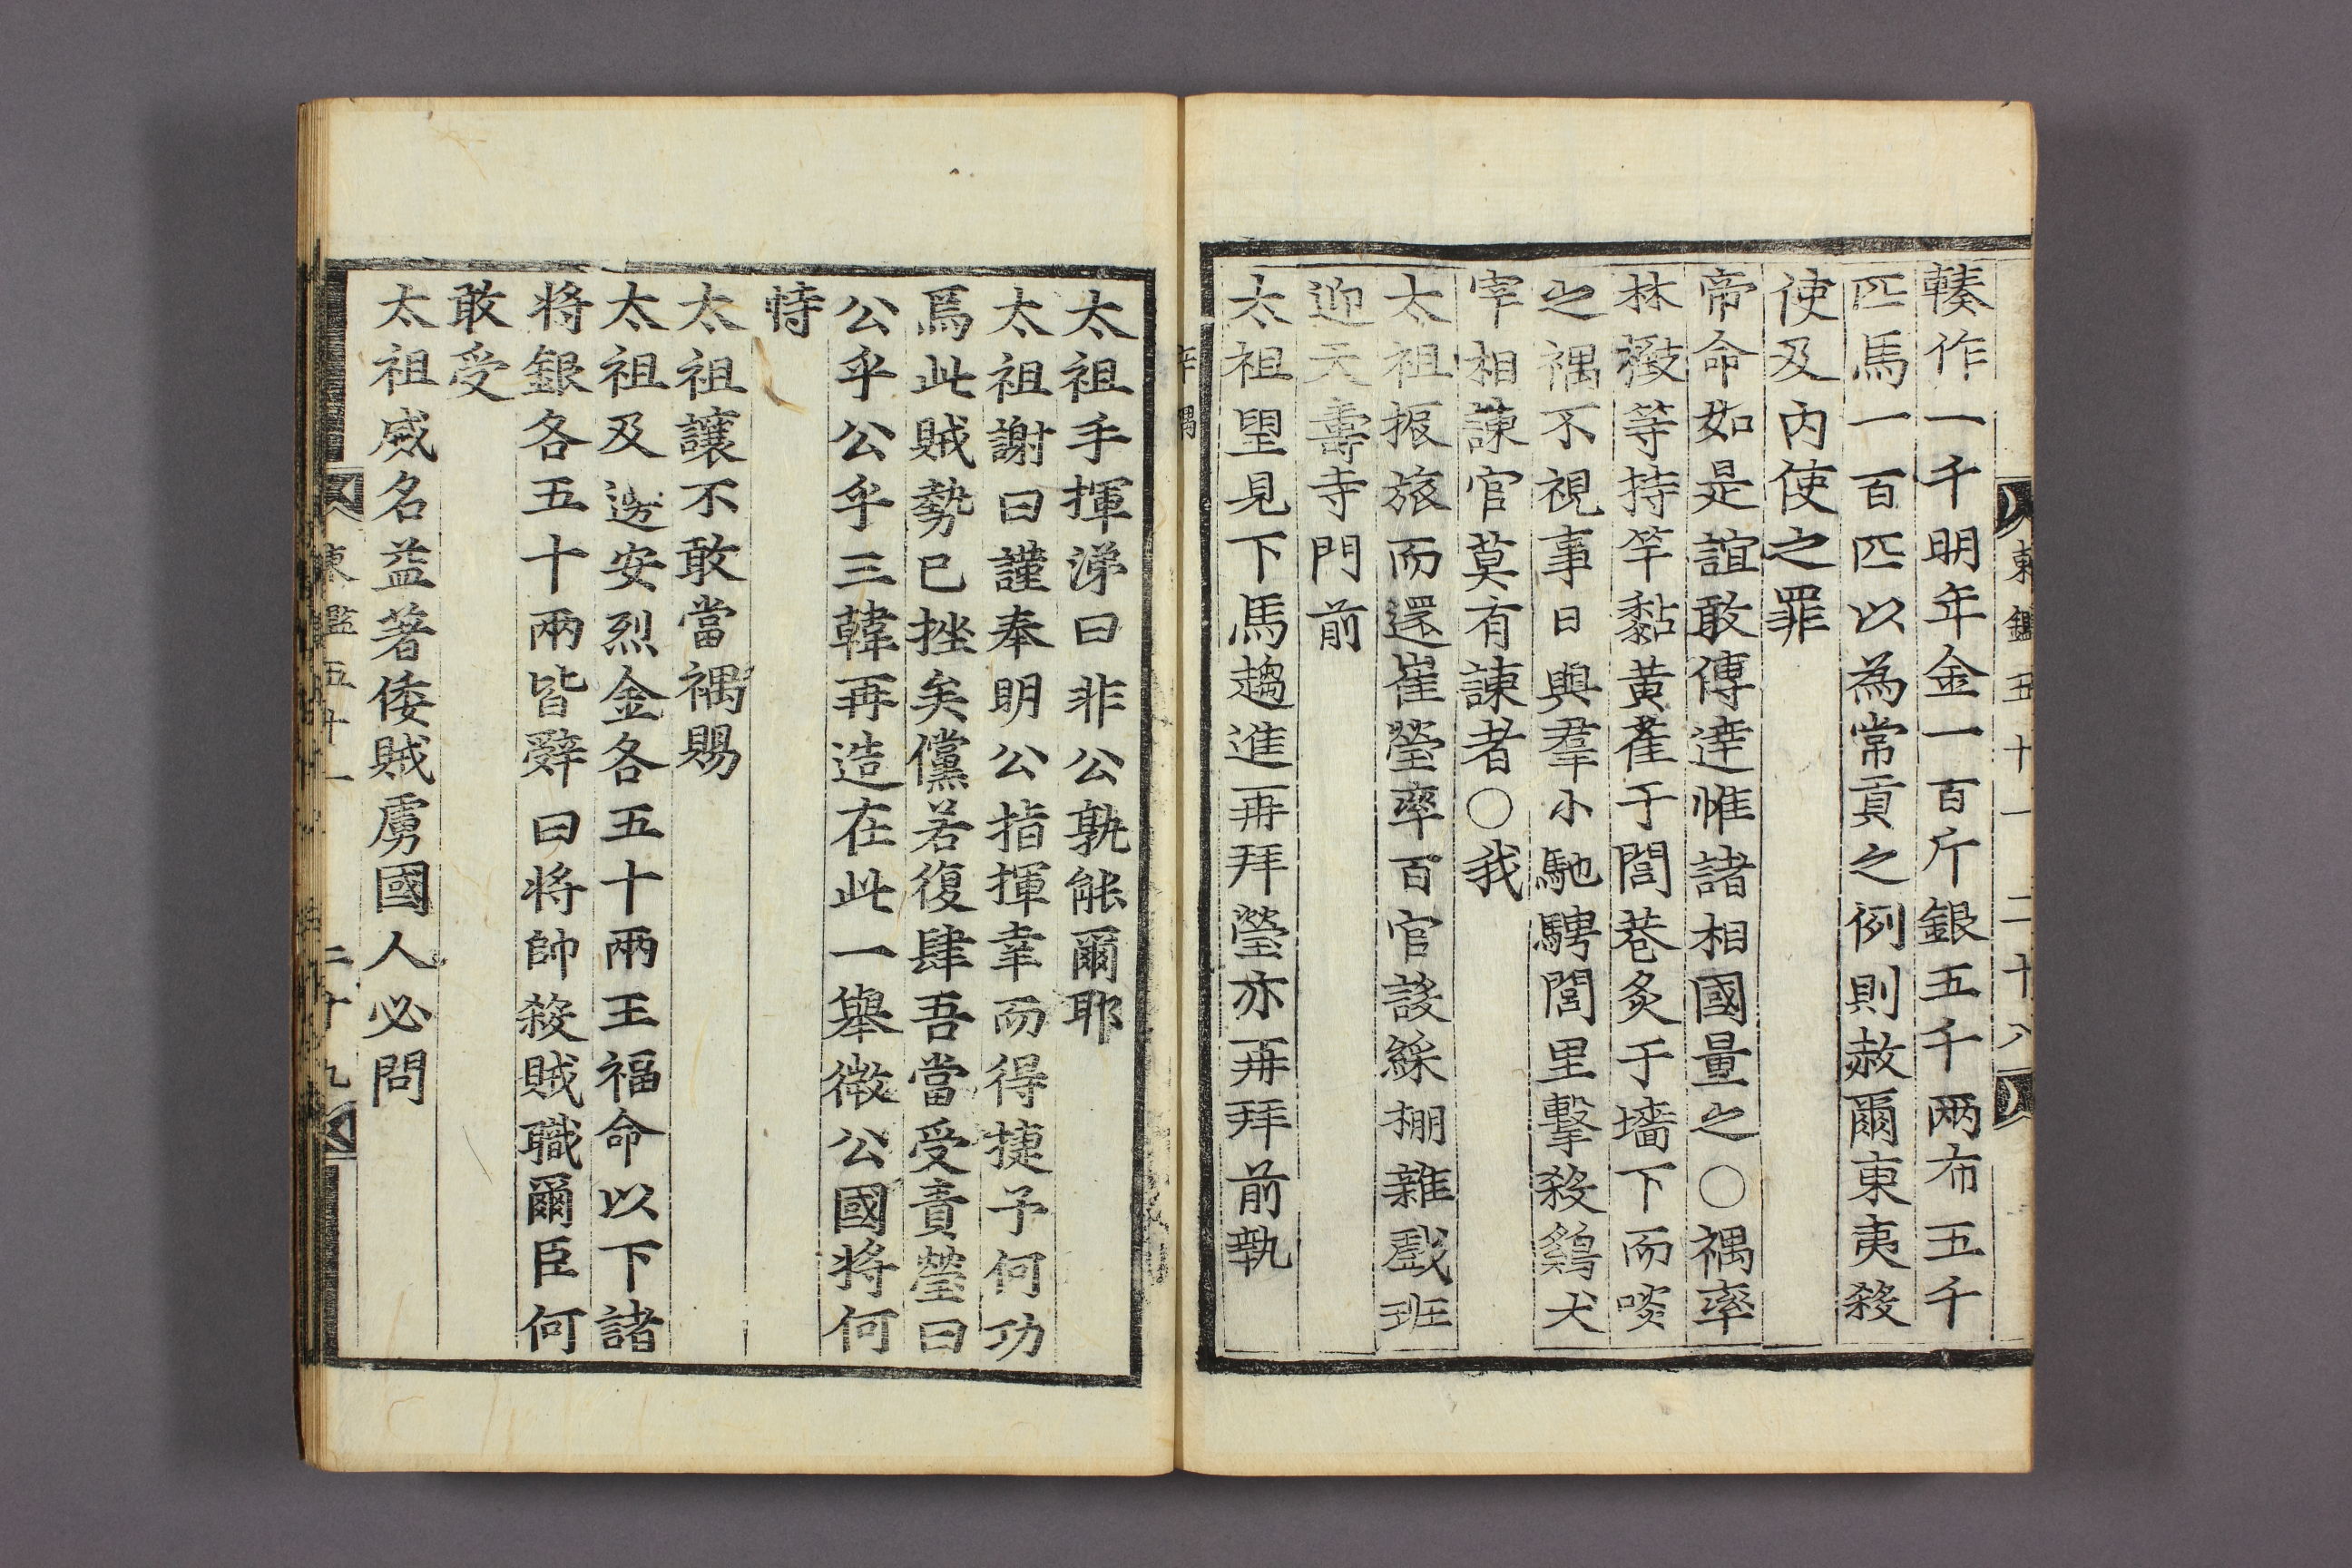 東鑑五十一 二十八
輳作一千明年金一百斤銀五千兩布五千
匹馬一百匹以為常貢之例則赦爾東夷殺
使及內使之罪
帝命如是誼敢傳達惟諸相國量之○禑率
林㮽等持竿黏黃雀于閭巷炙于墻下而啖
之禑不視事日與羣小馳騁閭里擊殺鷄犬
宰相諫官莫有諫者○我
太祖振旅而還崔瑩率百官設綵棚雜戲班
迎天壽寺門前
太祖望見下馬趨進再拜瑩亦再拜前執
辛禑
太祖手揮涕曰非公孰能爾耶
太祖謝曰謹奉明公指揮幸而得捷予何功
焉此賊勢已挫矣儻若復肆吾當受責瑩曰
公乎公乎三韓再造在此一擧微公國將何
恃
太祖讓不敢當禑賜
太祖及邊安烈金各五十兩王福命以下諸
將銀各五十兩皆辭曰將帥殺賊職爾臣何
敢受
太祖威名益著倭賊虜國人必問
東鑑五十一 二十九